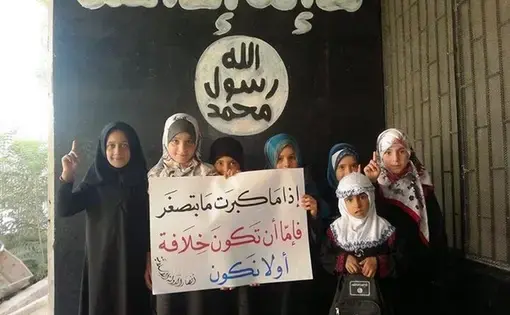 الله
رسول
محمد
إذا ما كبرت ما بتصغَر
فإمّا أن تكونَ خلافة
أو لا نكون
أنصار الدولة